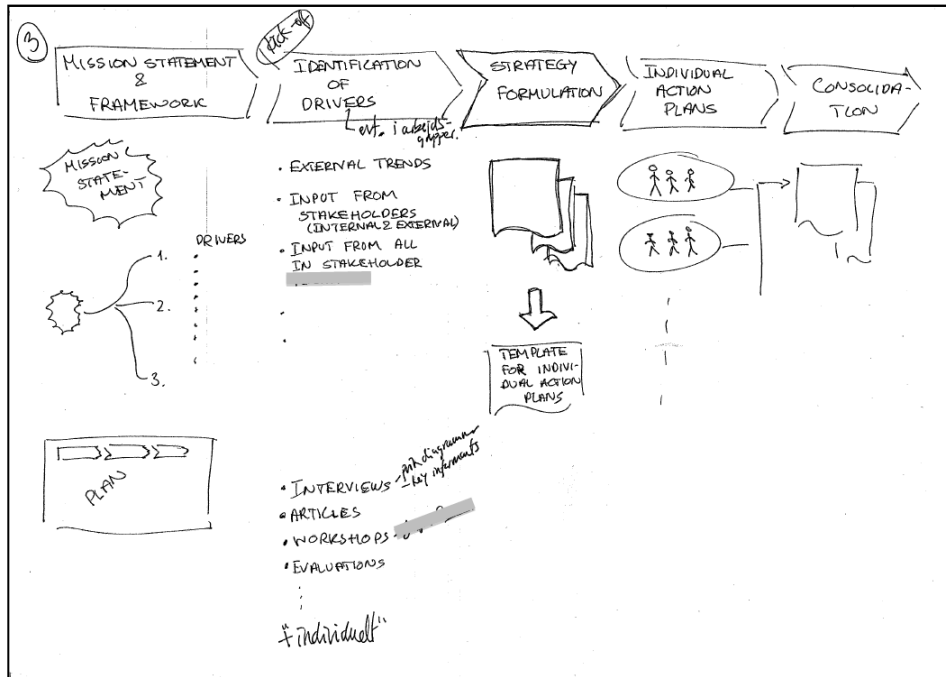 3
MISSION STATEMENT
&
FRAMEWORK
kick-off
IDENTIFICATION
OF
DRIVERS
evt. i arbejds-
grupper.
STRATEGY
FORMULATION
INDIVIDUAL
ACTION
PLANS
CONSOLIDA-
TION
MISSION
STATE-
MENT
DRIVERS
1.
2.
3.
PLAN
• EXTERNAL TRENDS
• INPUT FROM
STAKEHOLDERS
(INTERNAL & EXTERNAL)
• INPUT FROM ALL
IN STAKEHOLDER
• INTERVIEWS - diagrammer
- key informants
• ARTICLES
• WORKSHOPS -
• EVALUATIONS
"individuelt"
TEMPLATE
FOR INDIVI-
DUAL ACTION
PLANS